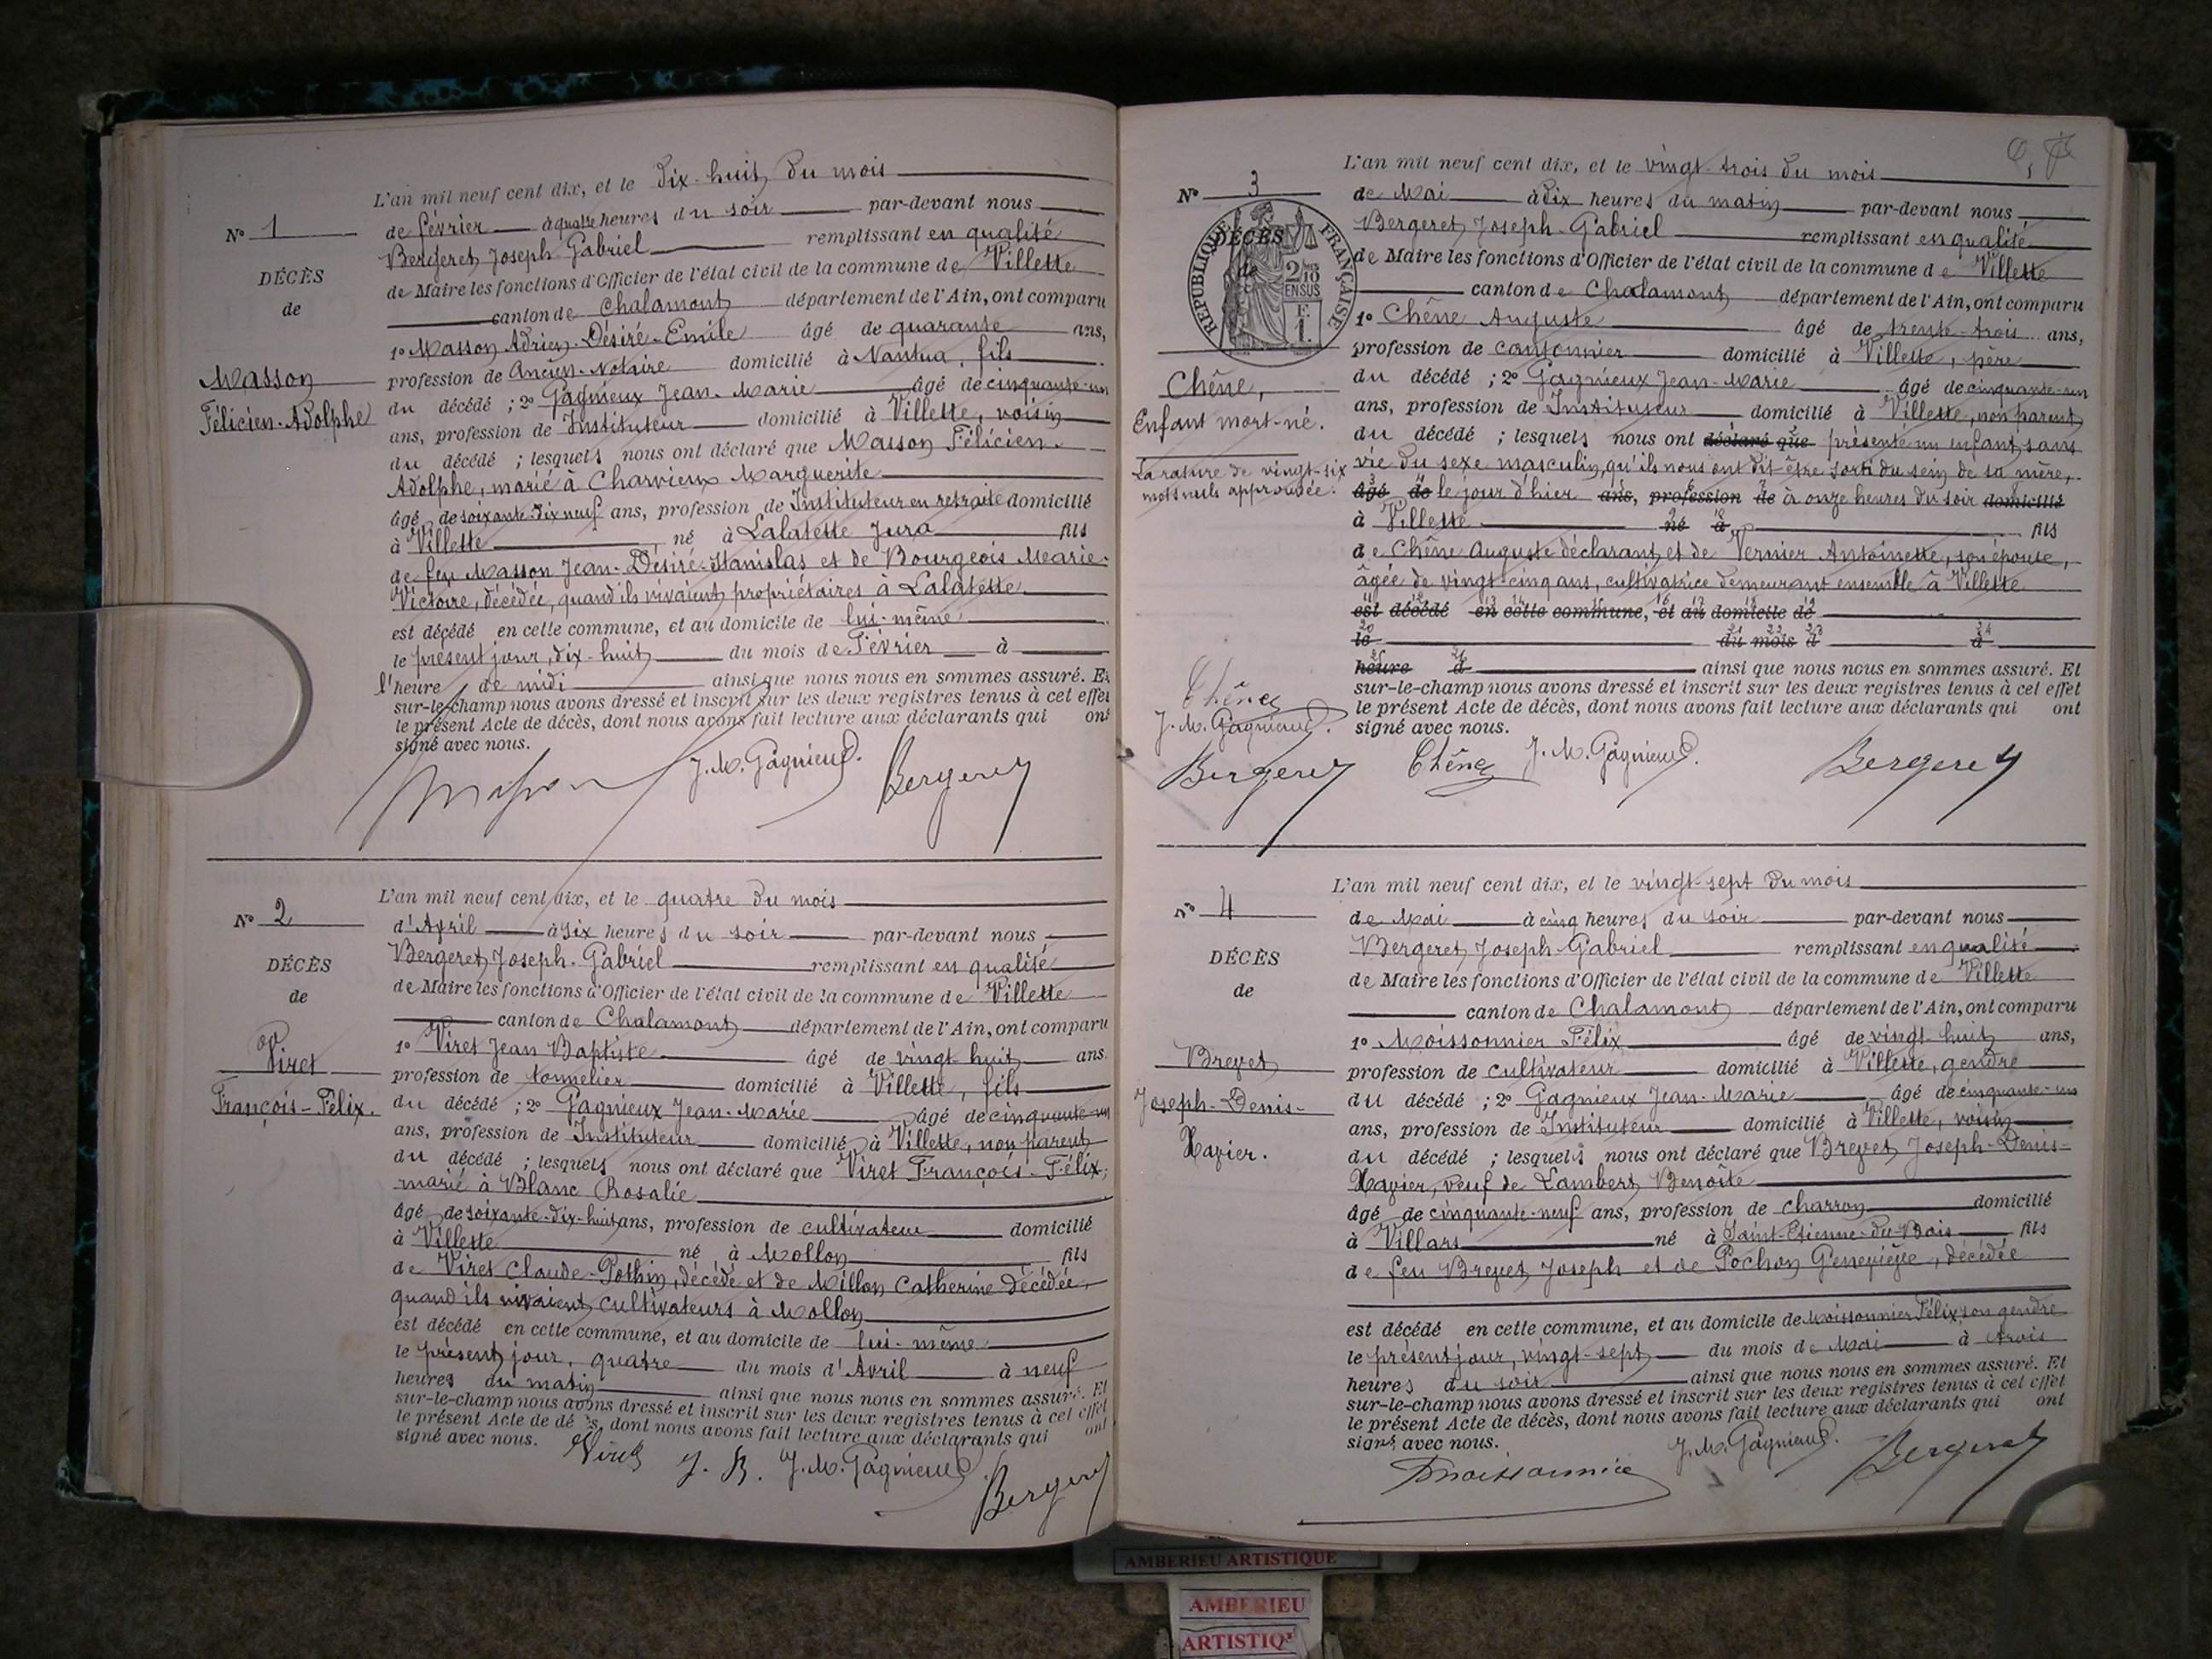 L'an mil neuf cent dix, et le dix-huit du mois
N° 1
de février à quatre heures du soir par-devant nous
Bergeret Joseph Gabriel remplissant en qualité
de Maire les fonctions d'Officier de l'état civil de la commune de Villette
canton de Chalamont département de l'Ain, ont comparu
1° Masson Adrien-Désiré-Emile âgé de quarante ans,
profession de Ancien Notaire domicilié à Nantua, fils
du décédé ; 2° Gagnieux Jean-Marie âgé de cinquante-un
ans, profession de Instituteur domicilié à Villette, voisin
du décédé ; lesquels nous ont déclaré que Masson Félicien-
Adolphe, marié à Charvieux Marguerite
âgé de soixante-dix neuf ans, profession de Instituteur en retraite domicilié
à Villette, né à Lalatette Jura fils
de feu Masson Jean-Désiré-Stanislas et de Bourgeois Marie-
Victoire, décédée, quand ils vivaient propriétaires à Lalatette
est décédé en cette commune, et au domicile de lui-même
le présent jour, dix-huit du mois de Février à
l'heure de midi ainsi que nous nous en sommes assuré. Et
sur-le-champ nous avons dressé et inscrit sur les deux registres tenus à cet effet
le présent Acte de décès, dont nous avons fait lecture aux déclarants qui ont
signé avec nous.
DÉCÈS
de
Masson
Félicien-Adolphe
Masson J. M. Gagnieux. Bergeret
L'an mil neuf cent dix, et le quatre du mois
N° 2
d'Avril à six heures du soir par-devant nous
Bergeret Joseph-Gabriel remplissant en qualité
de Maire les fonctions d'Officier de l'état civil de la commune de Villette
canton de Chalamont département de l'Ain, ont comparu
1° Viret Jean Baptiste âgé de vingt-huit ans.
profession de tonnelier domicilié à Villette, fils
du décédé ; 2° Gagnieux Jean-Marie âgé de cinquante-un
ans, profession de Instituteur domicilié à Villette, non parent
du décédé ; lesquels nous ont déclaré que Viret François-Félix,
marié à Blanc Rosalie
âgé de soixante-dix-huit ans, profession de cultivateur domicilié
à Villette né à Mollon fils
de Viret Claude-Pothin, décédé et de Millon Catherine décédée,
quand ils vivaient cultivateurs à Mollon
est décédé en cette commune, et au domicile de lui-même
le présent jour, quatre du mois d'Avril à neuf
heures du matin ainsi que nous nous en sommes assuré. Et
sur-le-champ nous avons dressé et inscrit sur les deux registres tenus à cet effet
le présent Acte de décès, dont nous avons fait lecture aux déclarants qui ont
signé avec nous.
DÉCÈS
de
Viret
François-Félix.
Viret J. B. J. M. Gagnieux. Bergeret
L'an mil neuf cent dix, et le vingt-trois du mois
N° 3
de Mai à dix heures du matin par-devant nous
Bergeret Joseph-Gabriel remplissant en qualité
de Maire les fonctions d'Officier de l'état civil de la commune de Villette
canton de Chalamont département de l'Ain, ont comparu
1° Chêne Auguste âgé de trente-trois ans,
profession de cantonnier domicilié à Villette, père
du décédé ; 2° Gagnieux Jean-Marie âgé de cinquante-un
ans, profession de Instituteur domicilié à Villette, non parent
du décédé ; lesquels nous ont déclaré que présenté un enfant sans
vie du sexe masculin, qu'ils nous ont dit être sorti du sein de sa mère,
âgé de le jour d'hier ans, profession de à onze heures du soir domicilié
à Villette né à fils
de Chêne Auguste déclarant et de Vernier Antoinette, son épouse,
âgée de vingt-cinq ans, cultivatrice demeurant ensemble à Villette
est décédé en cette commune, et au domicile de
le du mois d à
heure d ainsi que nous nous en sommes assuré. Et
sur-le-champ nous avons dressé et inscrit sur les deux registres tenus à cet effet
le présent Acte de décès, dont nous avons fait lecture aux déclarants qui ont
signé avec nous.
RÉPUBLIQUE FRANÇAISE
2/10 EN SUS
DÉCÈS
de
Chêne,
Enfant mort-né.
La rature de vingt-six
mots nuls approuvée.
Chêne
J. M. Gagnieux.
Bergeret Chêne J. M. Gagnieux. Bergeret
L'an mil neuf cent dix, et le vingt-sept du mois
N° 4
de Mai à cinq heures du soir par-devant nous
Bergeret Joseph-Gabriel remplissant en qualité
de Maire les fonctions d'Officier de l'état civil de la commune de Villette
canton de Chalamont département de l'Ain, ont comparu
1° Moissonnier Félix âgé de vingt-huit ans,
profession de cultivateur domicilié à Villette, gendre
du décédé ; 2° Gagnieux Jean-Marie âgé de cinquante-un
ans, profession de Instituteur domicilié à Villette, voisin
du décédé ; lesquels nous ont déclaré que Brevet Joseph-Denis-
Xavier, veuf de Lambert Benoîte
âgé de cinquante-neuf ans, profession de charron domicilié
à Villars né à Saint-Etienne-du-Bois fils
de feu Brevet Joseph et de Pochon Geneviève, décédée
est décédé en cette commune, et au domicile de Moissonnier Félix son gendre
le présent jour, vingt-sept du mois de Mai à trois
heures du soir ainsi que nous nous en sommes assuré. Et
sur-le-champ nous avons dressé et inscrit sur les deux registres tenus à cet effet
le présent Acte de décès, dont nous avons fait lecture aux déclarants qui ont
signé avec nous.
DÉCÈS
de
Brevet
Joseph-Denis-
Xavier.
Moissonnier J. M. Gagnieux. Bergeret
AMBERIEU ARTISTIQUE
AMBERIEU
ARTISTIQ